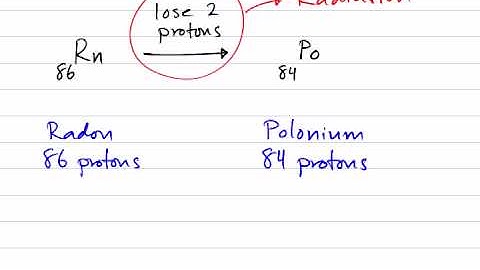 lose 2 Radiation
protons
Rn Po
86 84
Radon Polonium
86 protons 84 protons